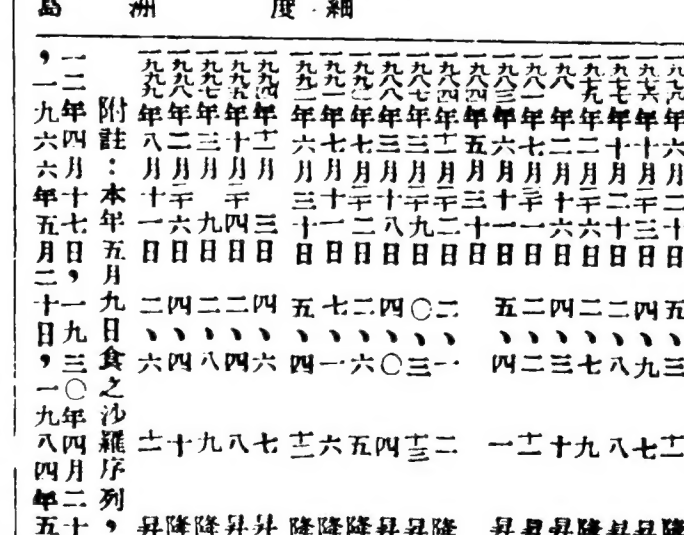 細度
洲
島
年六月二十日 五、三 十二 隆
一九七六年十月二十三日 四、九 七 昇
一九七七年十月十二日 二、八 八 昇
一九七九年二月二十六日 二、七 九 隆
一九八〇年二月十六日 四、三 十 昇
一九八一年七月三十一日 二、二 十二 昇
一九八三年六月十一日 五、四 一 昇
一九八四年五月三十日
一九八四年十一月二十二日 二、一 二 隆
一九八七年三月二十九日 〇、三 十三 昇
一九八八年三月十八日 四、〇 四 昇
一九九〇年七月二十二日 二、六 五 隆
一九九一年七月十一日 七、一 六 隆
一九九二年六月三十日 五、四 十三 隆
一九九四年十一月三日 四、六 七 昇
一九九五年十月二十四日 二、四 八 昇
一九九七年三月九日 二、八 九 隆
一九九八年二月二十六日 四、四 十 隆
一九九九年八月十一日 二、六 十二 昇
附註：本年五月九日食之沙羅序列，
一二年四月十七日，一九三〇年四月二十
，一九六六年五月二十日，一九八四年五